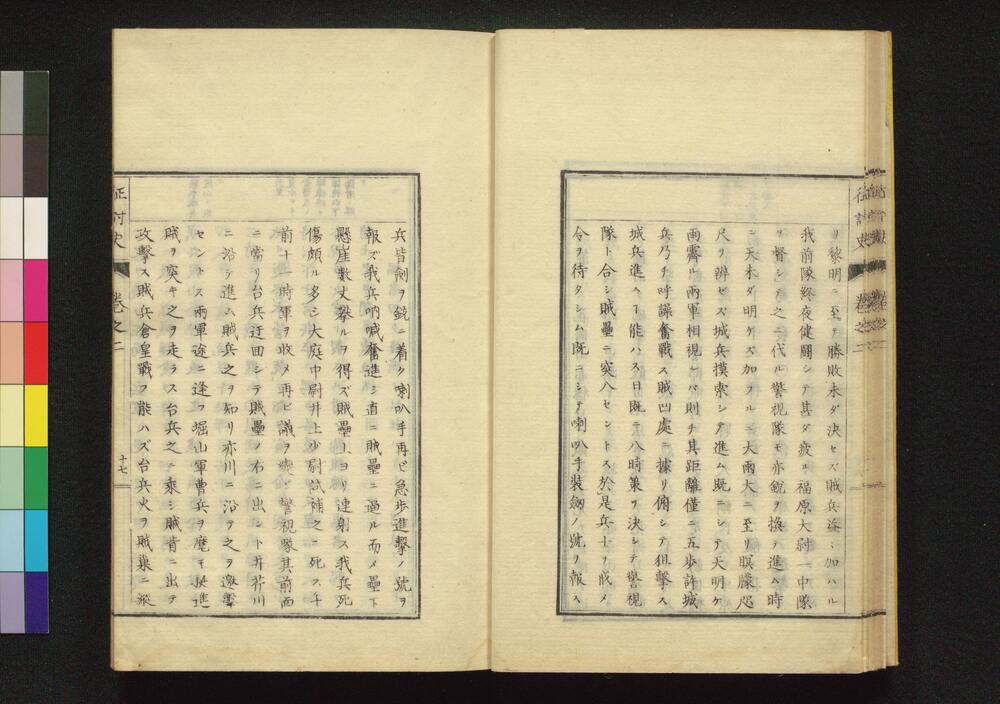 征討史 卷之二
リ黎明ニ至テ勝敗未ダ決セズ賊兵益〻加ハル
我前隊終夜健闘シテ甚ダ疲ル福原大尉一中隊
ヲ督シテ之ニ代ル警視隊モ亦銳ヲ換テ進ム時
ニ天未ダ明ケズ加フルニ大雨大ニ至リ瞑朦咫
尺ヲ辨ゼズ城兵摸索シテ進ム既ニシテ天明ケ
雨霽ル兩軍相視レバ則チ其距離僅ニ五歩許城
兵乃チ呼譟奮戰ス賊凹處ニ據リ俯シテ狙擊ス
城兵進ヘヿ能ハス日既ニ八時策ヲ決シテ警視
隊ト合シ賊壘ニ突入セントス於是兵士ヲ戒メ
令ヲ待タシム既ニシテ喇叭手装劔ノ號ヲ報ス
兵皆劍ヲ銃ニ着ク喇叭手再ビ急歩進擊ノ號ヲ
報ズ我兵吶喊奮進シ直ニ賊壘ニ逼ル而メ壘下
懸崖數丈攀ルヲ得ズ賊壘上ヨリ連射ス我兵死
傷頗ル多シ大庭中尉井上少尉試補之ニ死ス午
前十一時軍ヲ收メ再ビ議ヲ變ジ警視隊其前面
ニ當リ台兵迂回シテ賊壘ノ右ニ出ント井芹川
ニ沿テ進ム賊兵之ヲ知リ亦川ニ沿テ之ヲ邀擊
セントス兩軍途ニ逢フ堀山軍曹兵ヲ麾キ挺進
賊ヲ突キ之ヲ走ラス台兵之ニ乘シ賊背ニ出テ
攻擊ス賊兵倉皇戰フ能ハズ台兵火ヲ賊巢ニ縱
征討史 卷之二 十七